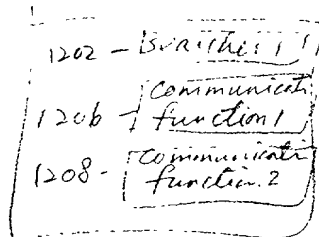 1202 -
1206 - communicati
function 1
1208 - communicati
function 2